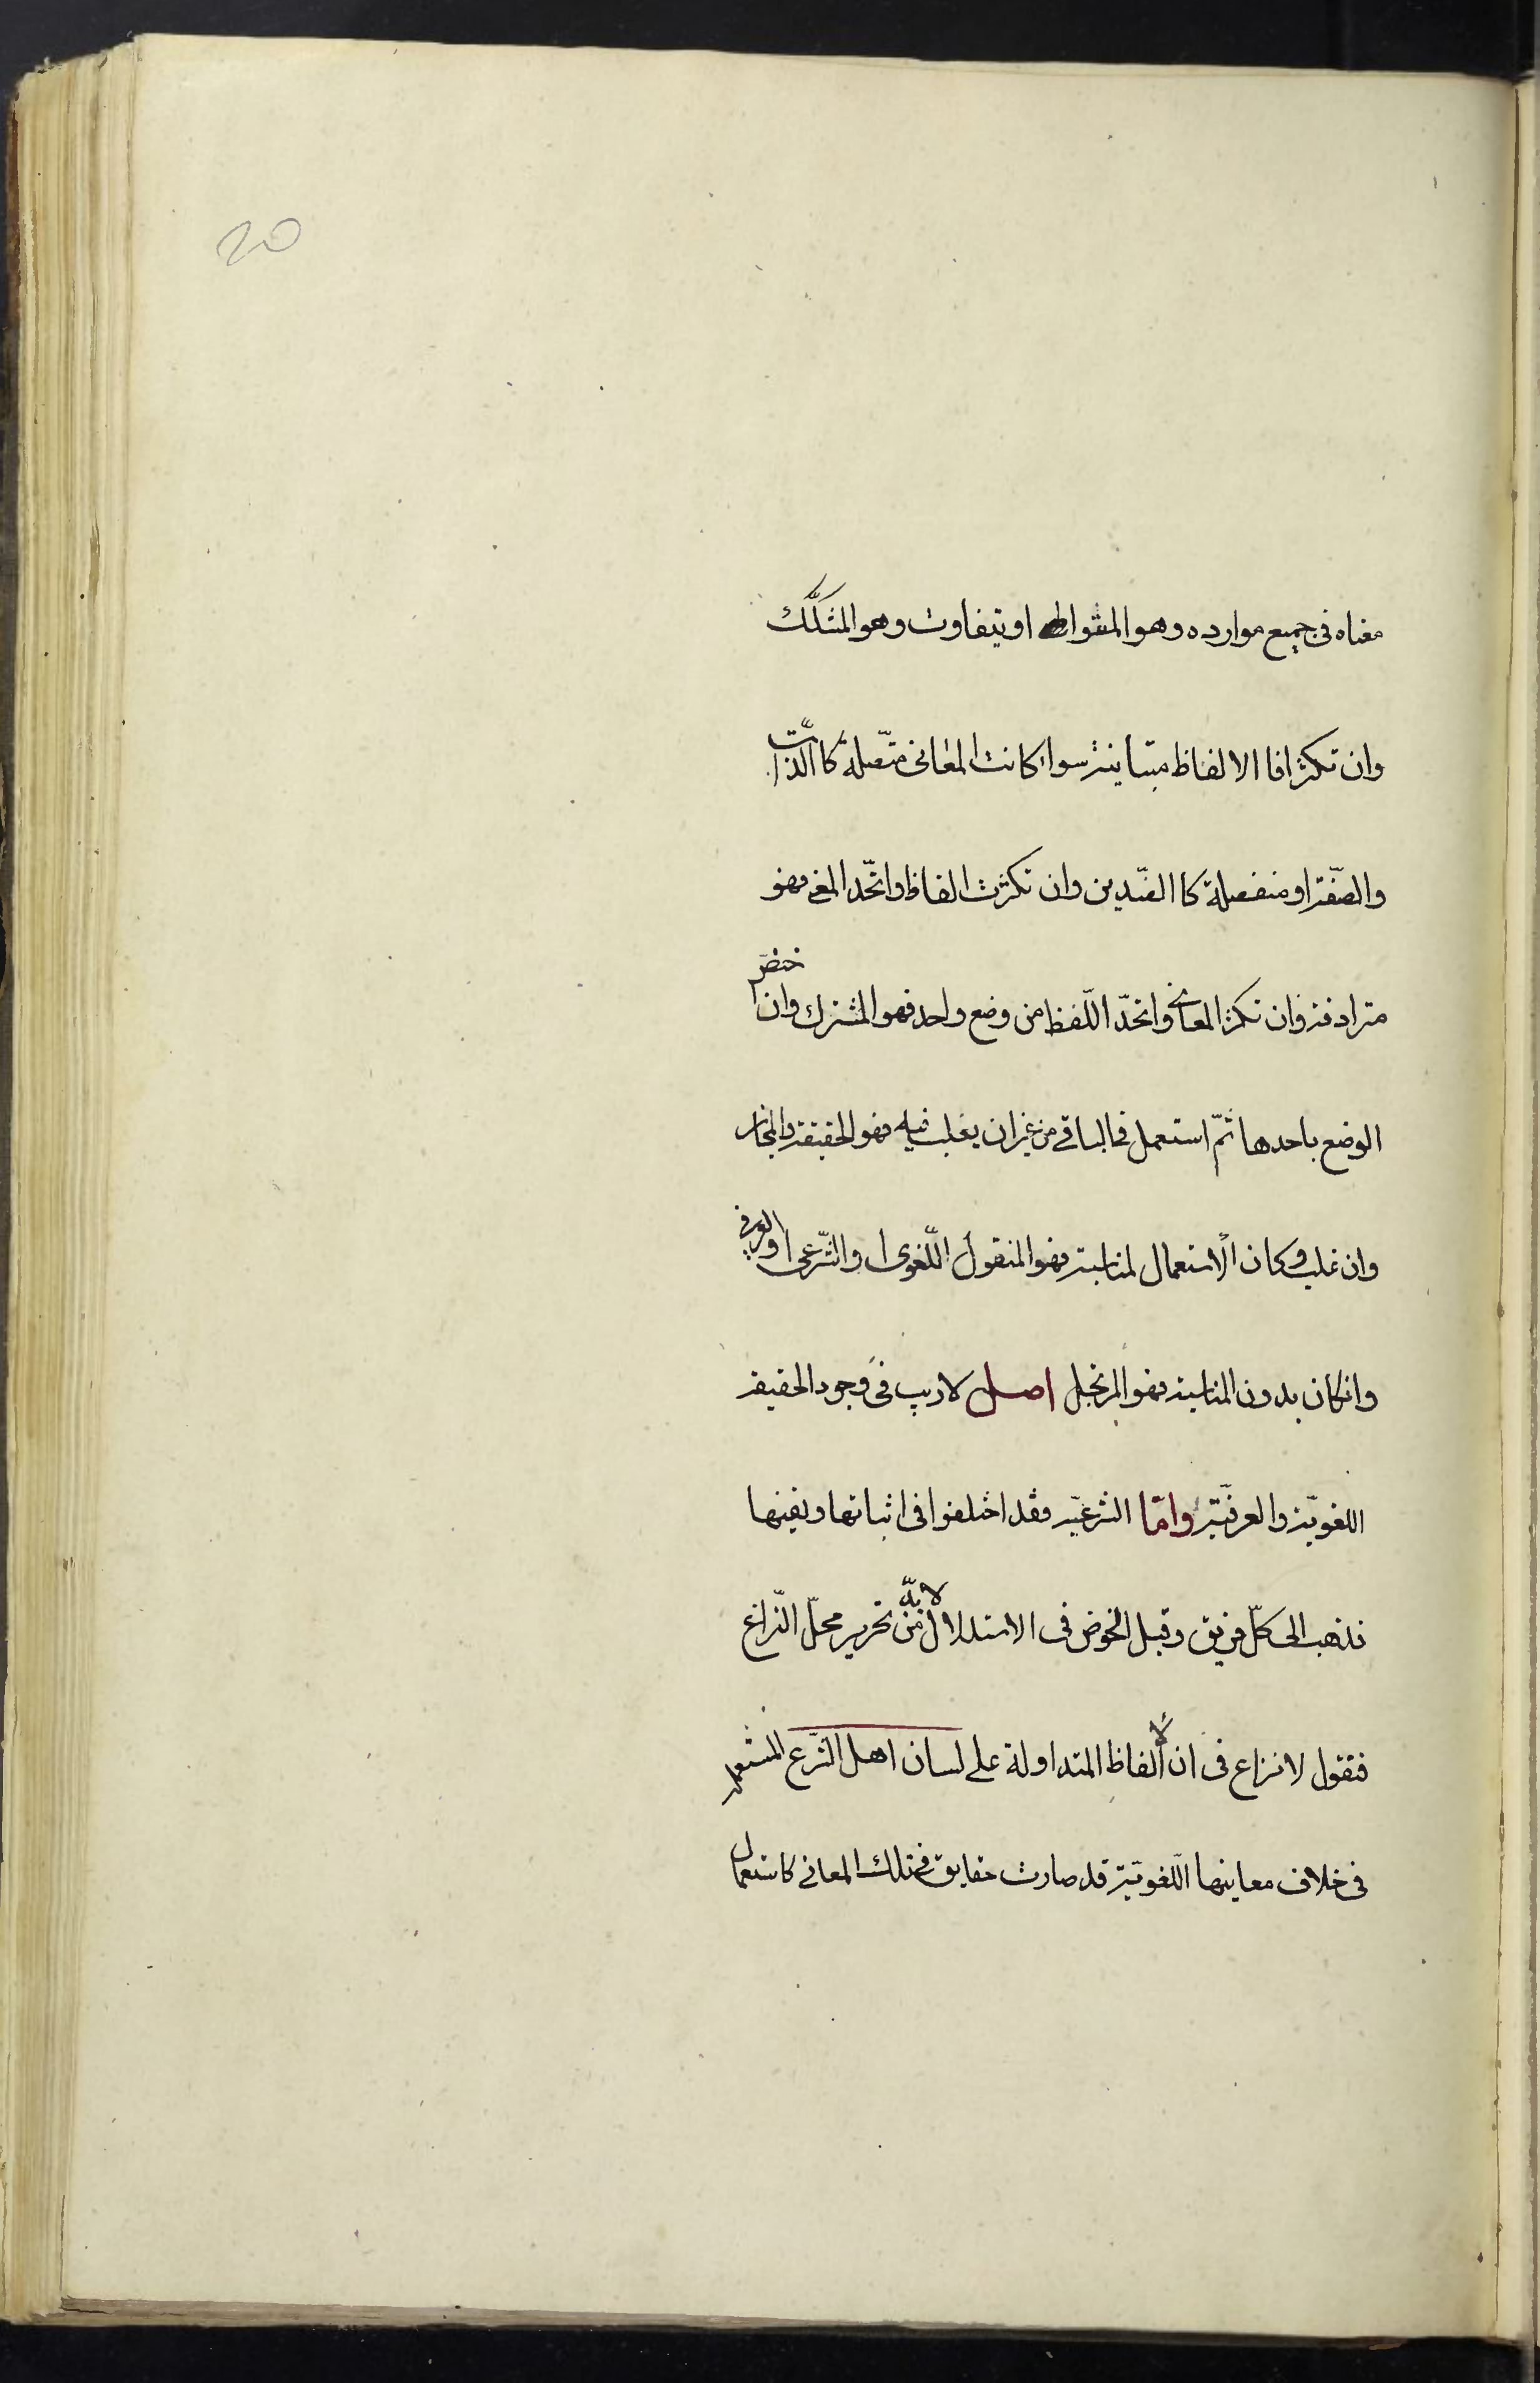 20
معناه فی جمیع موارده وهو المتواطی او یتفاوت وهو المشکّک
وان تکثرا فا الالفاظ متباینة سواء کانت المعانی متّصلة کا الذّات
والصّفة او منفصلة کا الضّدین وان تکثرت الفاظ واتّحد المعنی فهو
مترادفة وان تکثر المعانی واتحدّ اللّفظ من وضع واحد فهو المشترک وان اختصّ
الوضع باحدها ثمّ استعمل فی الباقی من غیر ان یغلب فیه فهو الحقیقة والمجاز
وان غلب وکان الاستعمال لمناسبة فهو المنقول اللّغوی او الشّرعی او العرفی
وانکان بدون المناسبة فهو المرتجل اصل لاریب فی وجود الحقیقة
اللغویّة والعرفیّة وامّا الشرعیّة فقد اختلفوا فی اثباتها ونفیها
فذهب الی کلّ فریق وقبل الخوض فی الاستدلال لابدّ من تحریر محلّ النّزاع
فنقول لانزاع فی ان الالفاظ المتداولة علی لسان اهل الشّرع المستعملة
فی خلاف معاینها اللّغویّة قد صارت حقایق فی تلک المعانی کاستعمال